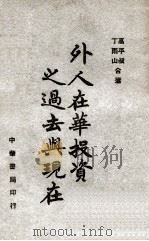 高平叔
丁雨山 合著
外人在華投資
之過去與現在
中華書局印行